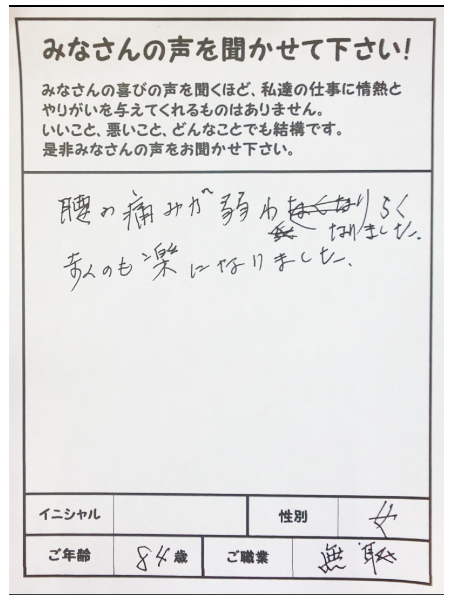 みなさんの声を聞かせて下さい!
みなさんの喜びの声を聞くほど、私達の仕事に情熱と
やりがいを与えてくれるものはありません。
いいこと、悪いこと、どんなことでも結構です。
是非みなさんの声をお聞かせ下さい。
腰の痛みが弱わ らく
なりました。
歩くのも楽になりました。
イニシャル 性別 女
ご年齢 84歳 ご職業 無職